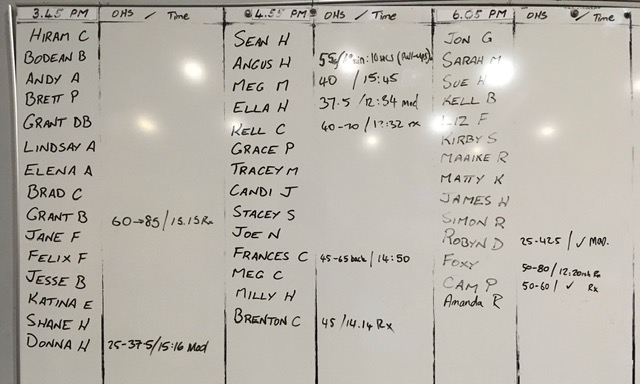 3.45 PM OHS / Time
HIRAM C
BODEAN B
ANDY A
BRETT P
GRANT DB
LINDSAY A
ELENA A
BRAD C
GRANT B 60→85 / 15.15 Rx
JANE F
FELIX F
JESSE B
KATINA E
SHANE H
DONNA H 25-37.5/15:16 Mod
4.55 PM OHS / Time
SEAN H
ANGUS H 55 (Pull-ups)
MEG M 40 / 15:45
ELLA H 37.5 / 12:34 mod
KELL C 40-70 / 12:32 rx
GRACE P
TRACEY M
CANDI J
STACEY S
JOE N
FRANCES C 45-65 back / 14:50
MEG C
MILLY H
BRENTON C 45 / 14.14 Rx
6.05 PM OHS / Time
JON G
SARAH M
SUE H
KELL B
LIZ F
KIRBY S
MAAIKE R
MATTY K
JAMES H
SIMON R
ROBYN D 25-42.5 / ✓ Mod.
FOXY 50-80 / Rx
CAM P 50-60 / ✓ Rx
Amanda R